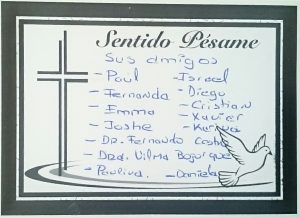 Sentido Pésame
Sus amigos
- Paul - Israel
- Fernanda - Diego
- Emma - Cristian
- Joshe - Xavier
- Karina
- Dr. Fernando
- Dra. Vilma Bojorque
- Paulina. - Daniela